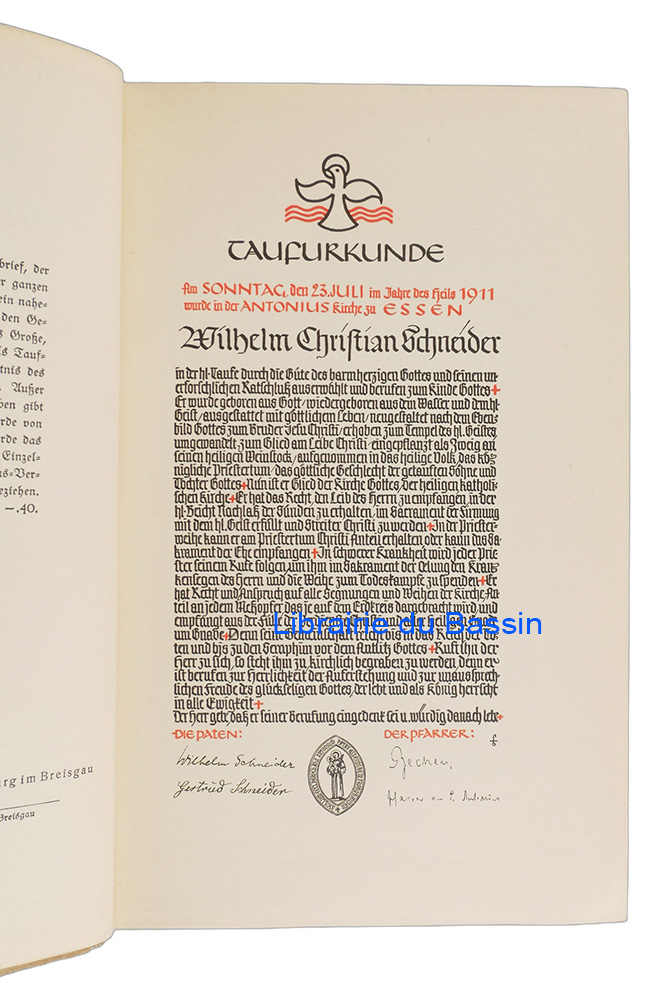 brief, der
r ganzen
ein nahe=
den Ge=
s Große,
ls Tauf=
tnis des
. Außer
ben gibt
rde von
rde das
Einzel=
ns=Ver=
eziehen.
—.40.
urg im Breisgau
Breisgau
TAUFURKUNDE
Am SONNTAG, den 23. JULI im Jahre des Heils 1911
wurde in der ANTONIUS Kirche zu ESSEN
Wilhelm Christian Schneider
in der hl. Taufe durch die Güte des barmherzigen Gottes und seinen un=
erforschlichen Ratschluß auserwählt und berufen zum Kinde Gottes +
Er wurde geboren aus Gott / wiedergeboren aus dem Wasser und dem hl.
Geist / ausgestattet mit göttlichem Leben / neugestaltet nach dem Eben=
bild Gottes zum Bruder Jesu Christi / erhoben zum Tempel des hl. Geistes,
umgewandelt zum Glied am Leibe Christi / eingepflanzt als Zweig an
seinen heiligen Weinstock / aufgenommen in das heilige Volk, das kö=
nigliche Priestertum / das göttliche Geschlecht der getauften Söhne und
Töchter Gottes + Nun ist er Glied der Kirche Gottes, der heiligen katholi=
schen Kirche + Er hat das Recht, den Leib des Herrn zu empfangen, in der
hl. Beicht Nachlaß der Sünden zu erhalten / im Sacrament der Firmung
mit dem hl. Geist erfüllt und Streiter Christi zu werden + In der Priester=
weihe kann er am Priestertum Christi Anteil erhalten oder kann das Sa=
krament der Ehe empfangen + In schwerer Krankheit wird jeder Prie=
ster seinem Rufe folgen, um ihm im Sakrament der Oelung den Kran=
kensegen des Herrn und die Weihe zum Todeskampfe zu spenden + Er
hat Recht und Anspruch auf alle Segnungen und Weihen der Kirche, An=
teil an jedem Meßopfer das je auf dem Erdkreis dargebracht wird, und
empfängt aus der
um Gnade + Denn seine Gemeinschaft reicht bis in das Reich der To=
ten und bis zu den Seraphim vor dem Antlitz Gottes + Ruft ihn der
Herr zu sich, so steht ihm zu, kirchlich begraben zu werden, denn er
ist berufen zur Herrlichkeit der Auferstehung und zur unaussprech=
lichen Freude des glückseligen Gottes, der lebt und als König herrscht
in alle Ewigkeit +
Der Herr gebe, daß er seiner Berufung eingedenk sei u. würdig danach lebe +
Librairie du Bassin
DIE PATEN:
DER PFARRER:
Wilhelm Schneider
Gertrud Schneider